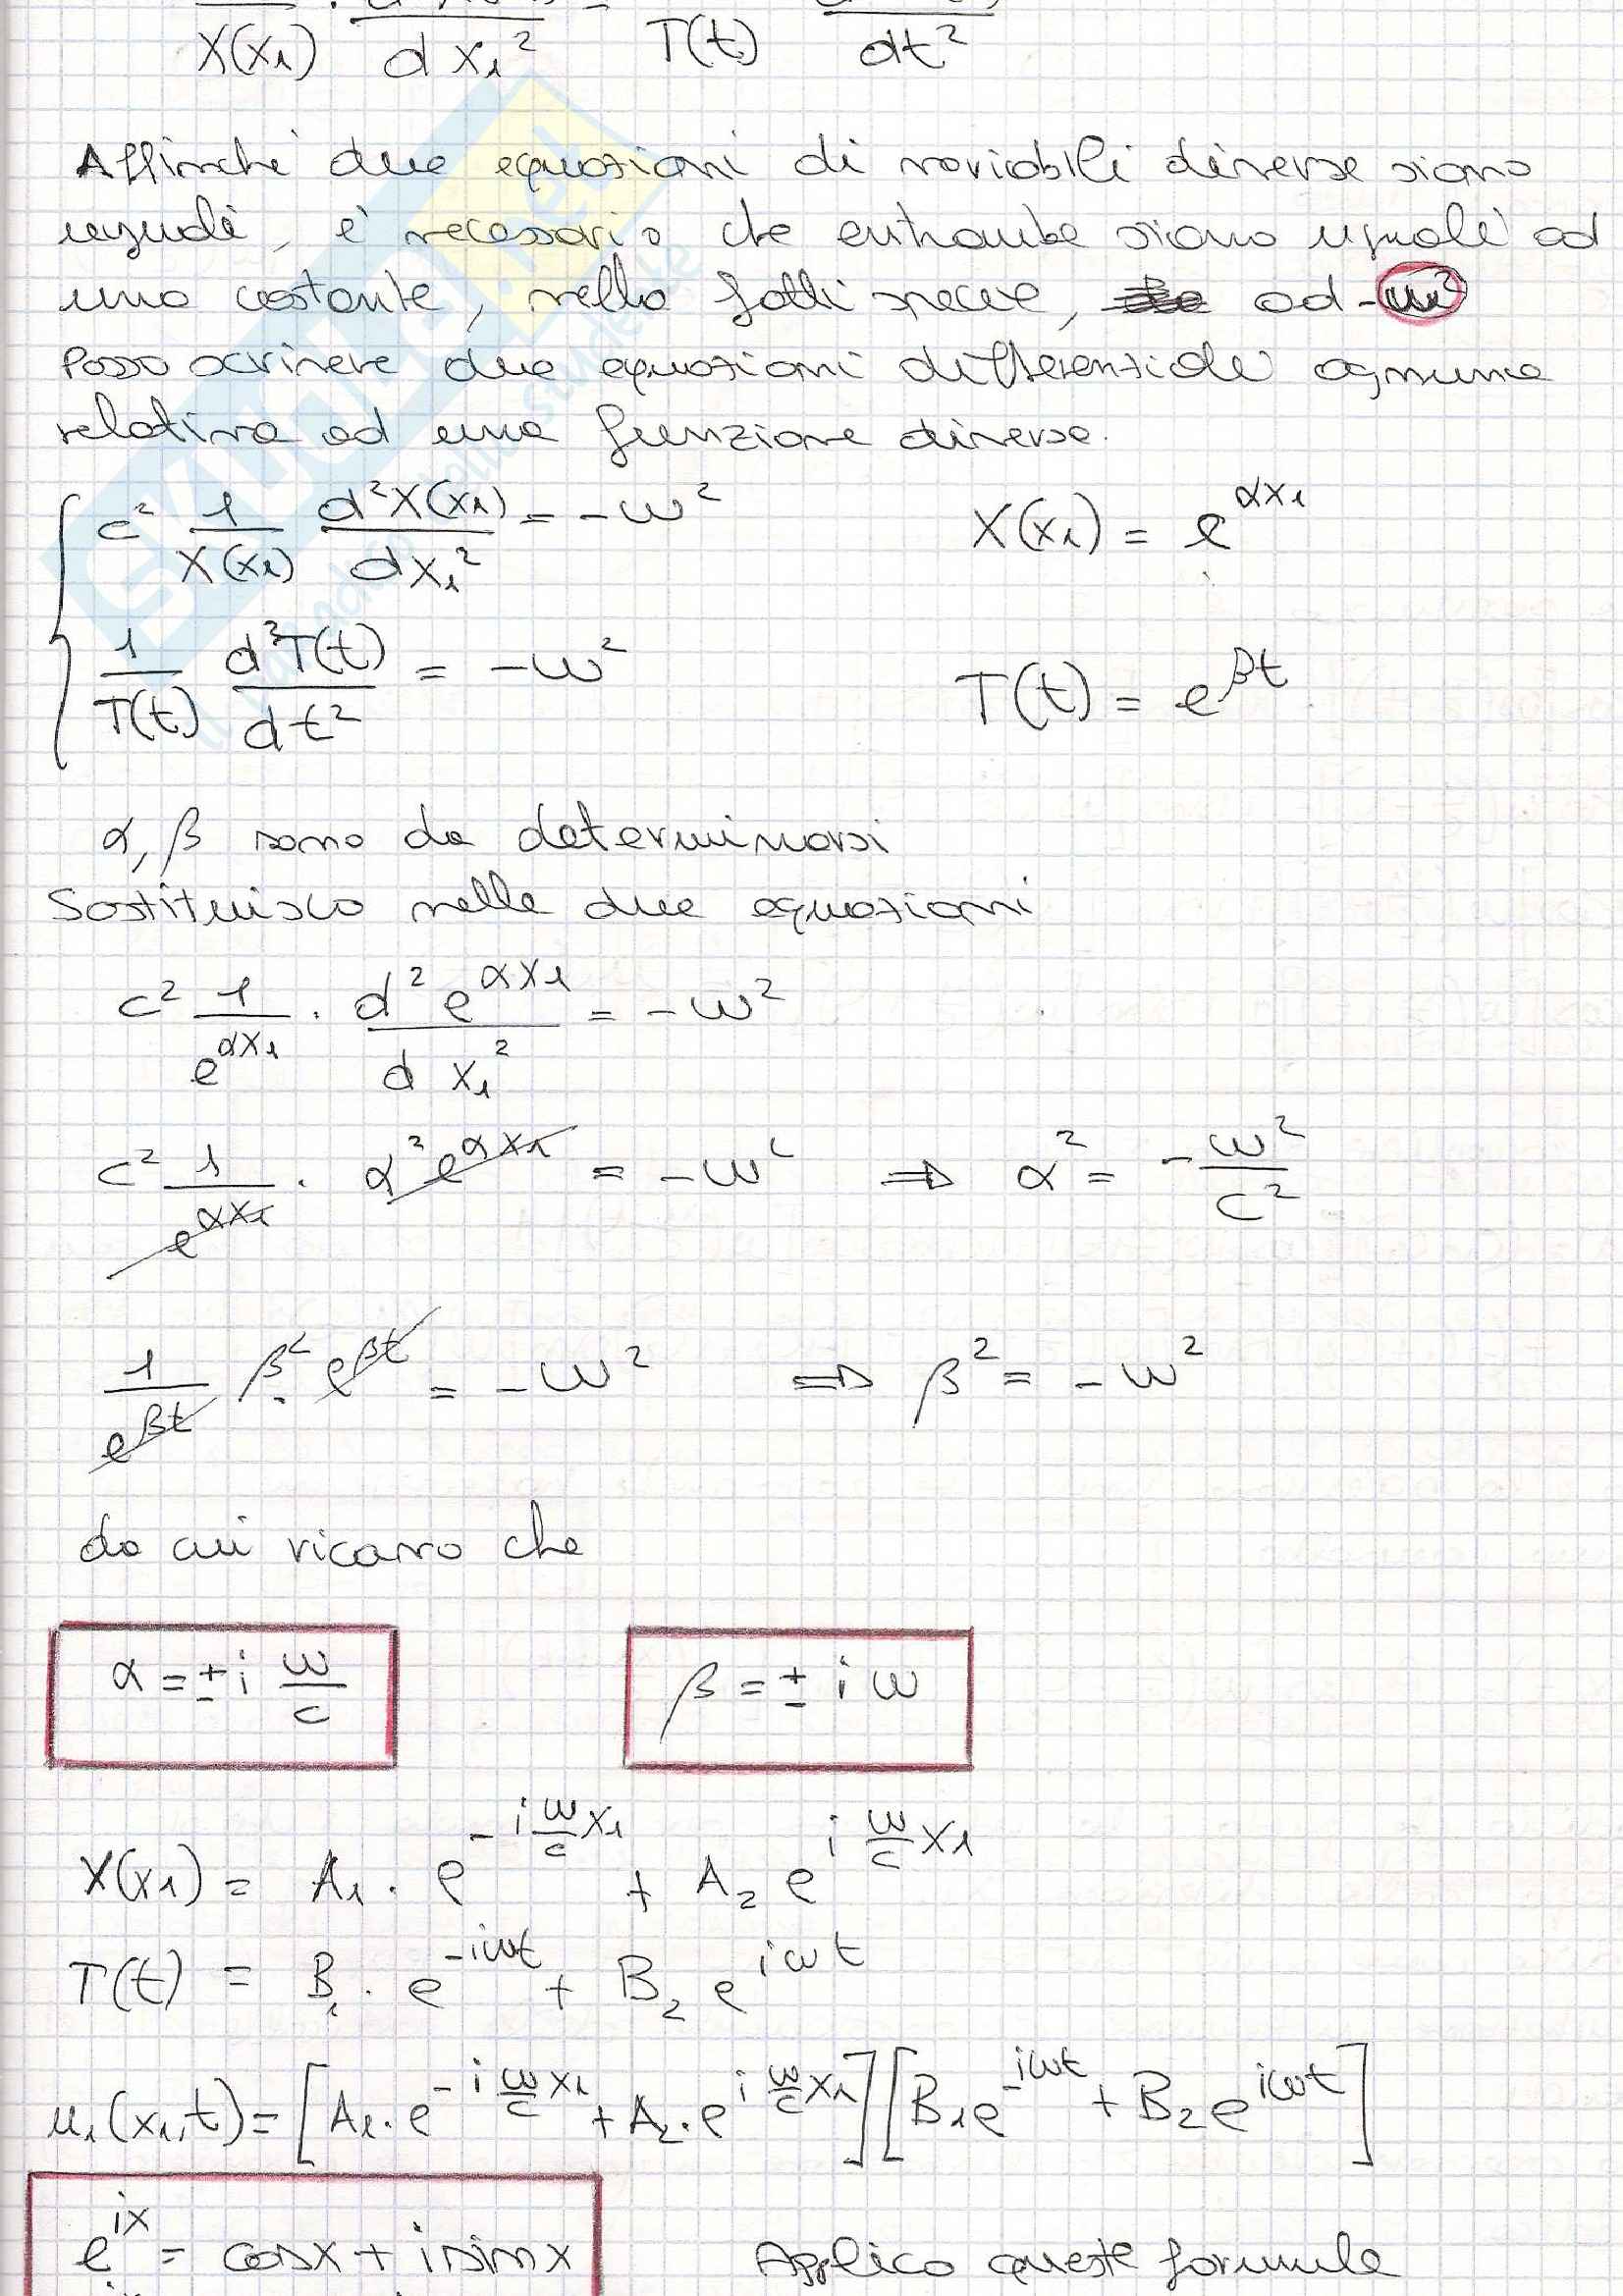 X(x₁) d x₁² T(t) dt²
Affinché due equazioni di variabili diverse siano
uguali, è necessario che entrambe siano uguali ad
una costante, nella fatti specie, ad -ω²
Posso scrivere due equazioni differenziali ognuna
relativa ad una funzione diversa.
c² 1/X(x₁) d²X(x₁)/dx₁² = -ω² X(x₁) = e^αx₁
1/T(t) d²T(t)/dt² = -ω² T(t) = e^βt
α, β sono da determinarsi
Sostituisco nelle due equazioni
c² 1/e^αx₁ · d² e^αx₁/d x₁² = -ω²
c² 1/e^αx₁ · α² e^αx₁ = -ω² ⇒ α² = -ω²/c²
1/e^βt β² · e^βt = -ω² ⇒ β² = -ω²
da cui ricavo che
α = ± i ω/c β = ± i ω
X(x₁) = A₁ · e^(-i ω/c x₁) + A₂ e^(i ω/c x₁)
T(t) = B₁ · e^(-iωt) + B₂ e^(iωt)
u₁(x₁,t) = [A₁ · e^(-i ω/c x₁) + A₂ · e^(i ω/c x₁)][B₁e^(-iωt) + B₂e^(iωt)]
e^ix = cosx + i sinx Applico queste formule